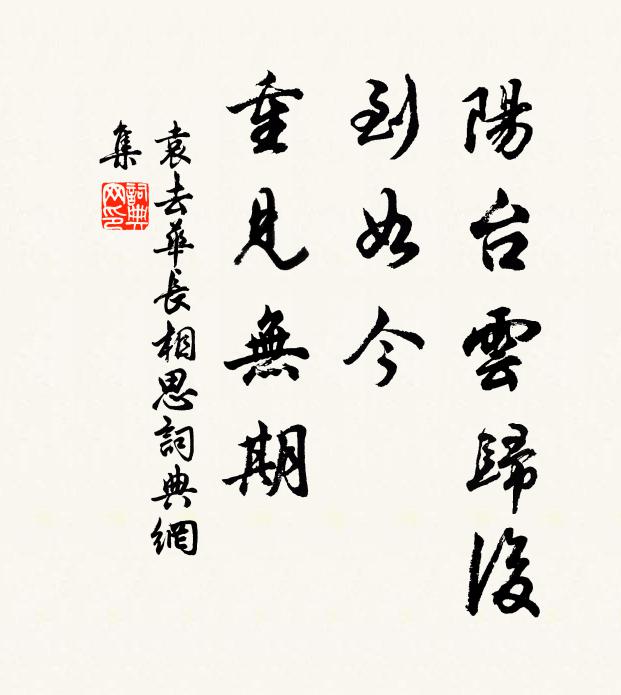 陽台雲歸後
到如今
重見無期
袁去華長相思詞典網
集
詞典
網印